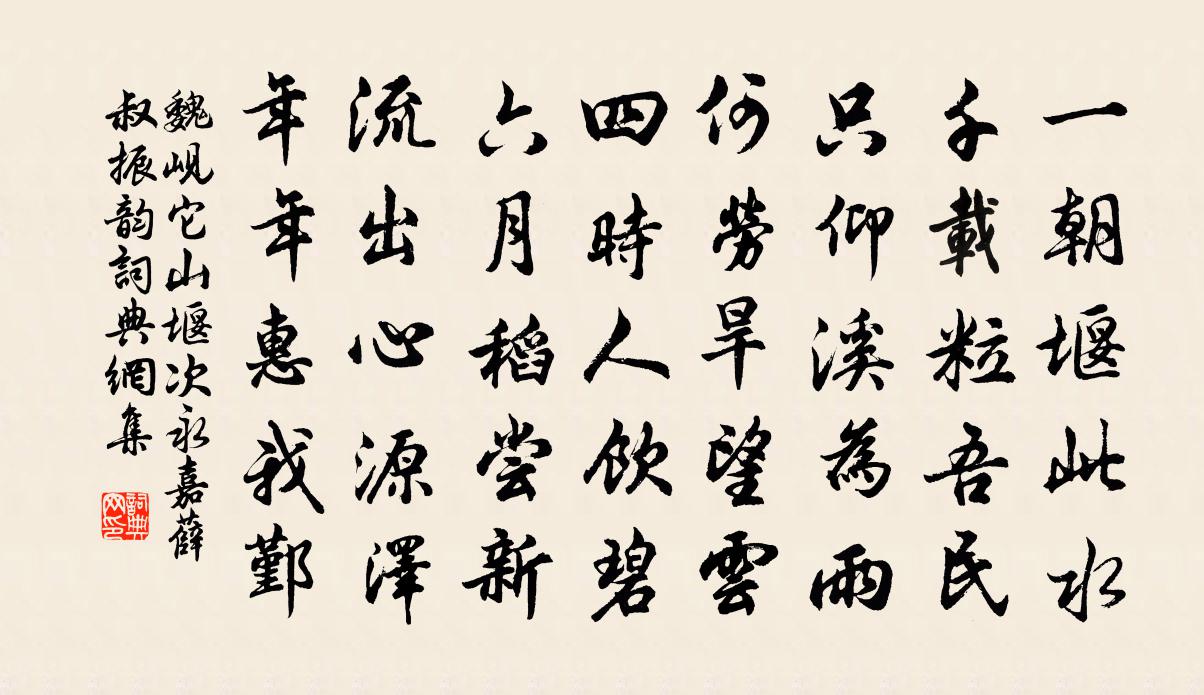 一朝堰此水
千載粒吾民
只仰溪為雨
何勞旱望雲
四時人飲碧
六月稻嘗新
流出心源澤
年年惠我鄞
魏峴它山堰次永嘉薛
叔振韵詞典網集
詞典网印